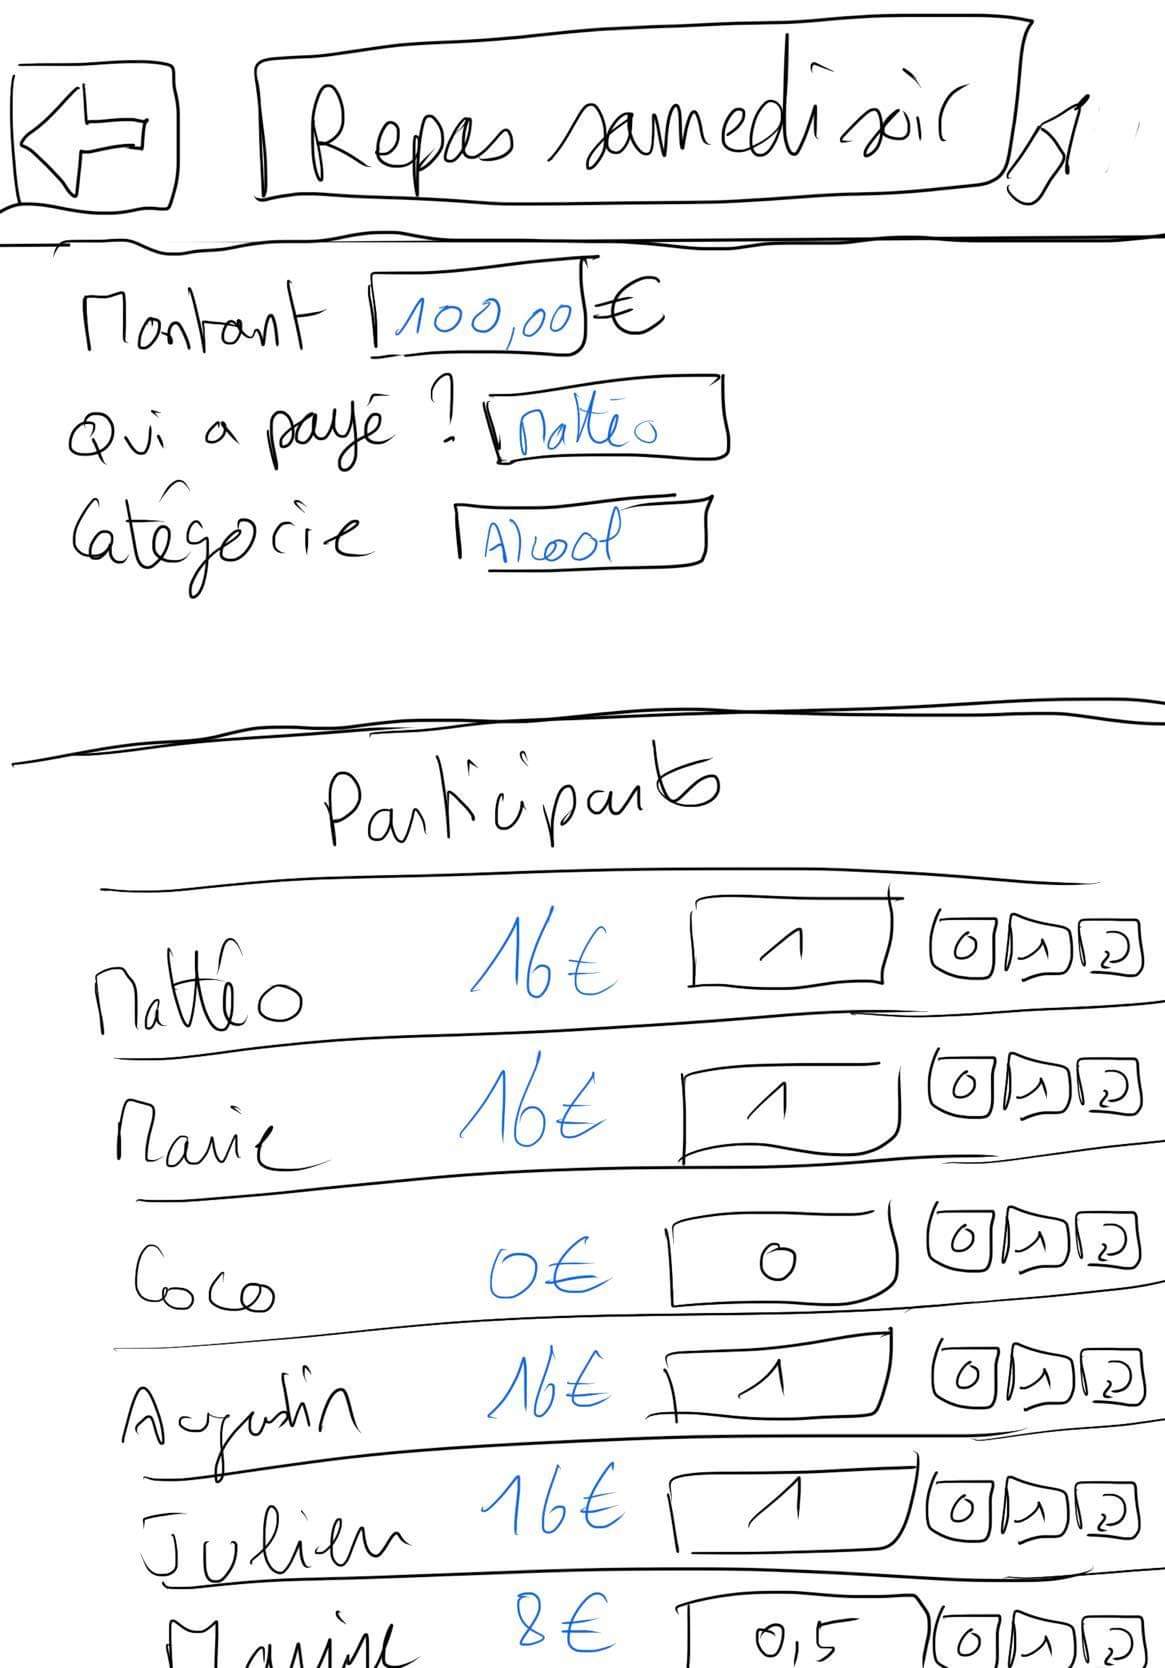 Repas samedi soir
Montant 100,00 €
Qui a payé ? Mattéo
Catégorie Alcool
Participants
Mattéo 16€ 1 0 1 2
Marie 16€ 1 0 1 2
Coco 0€ 0 0 1 2
Augustin 16€ 1 0 1 2
Julien 16€ 1 0 1 2
8€ 0,5 0 1 2